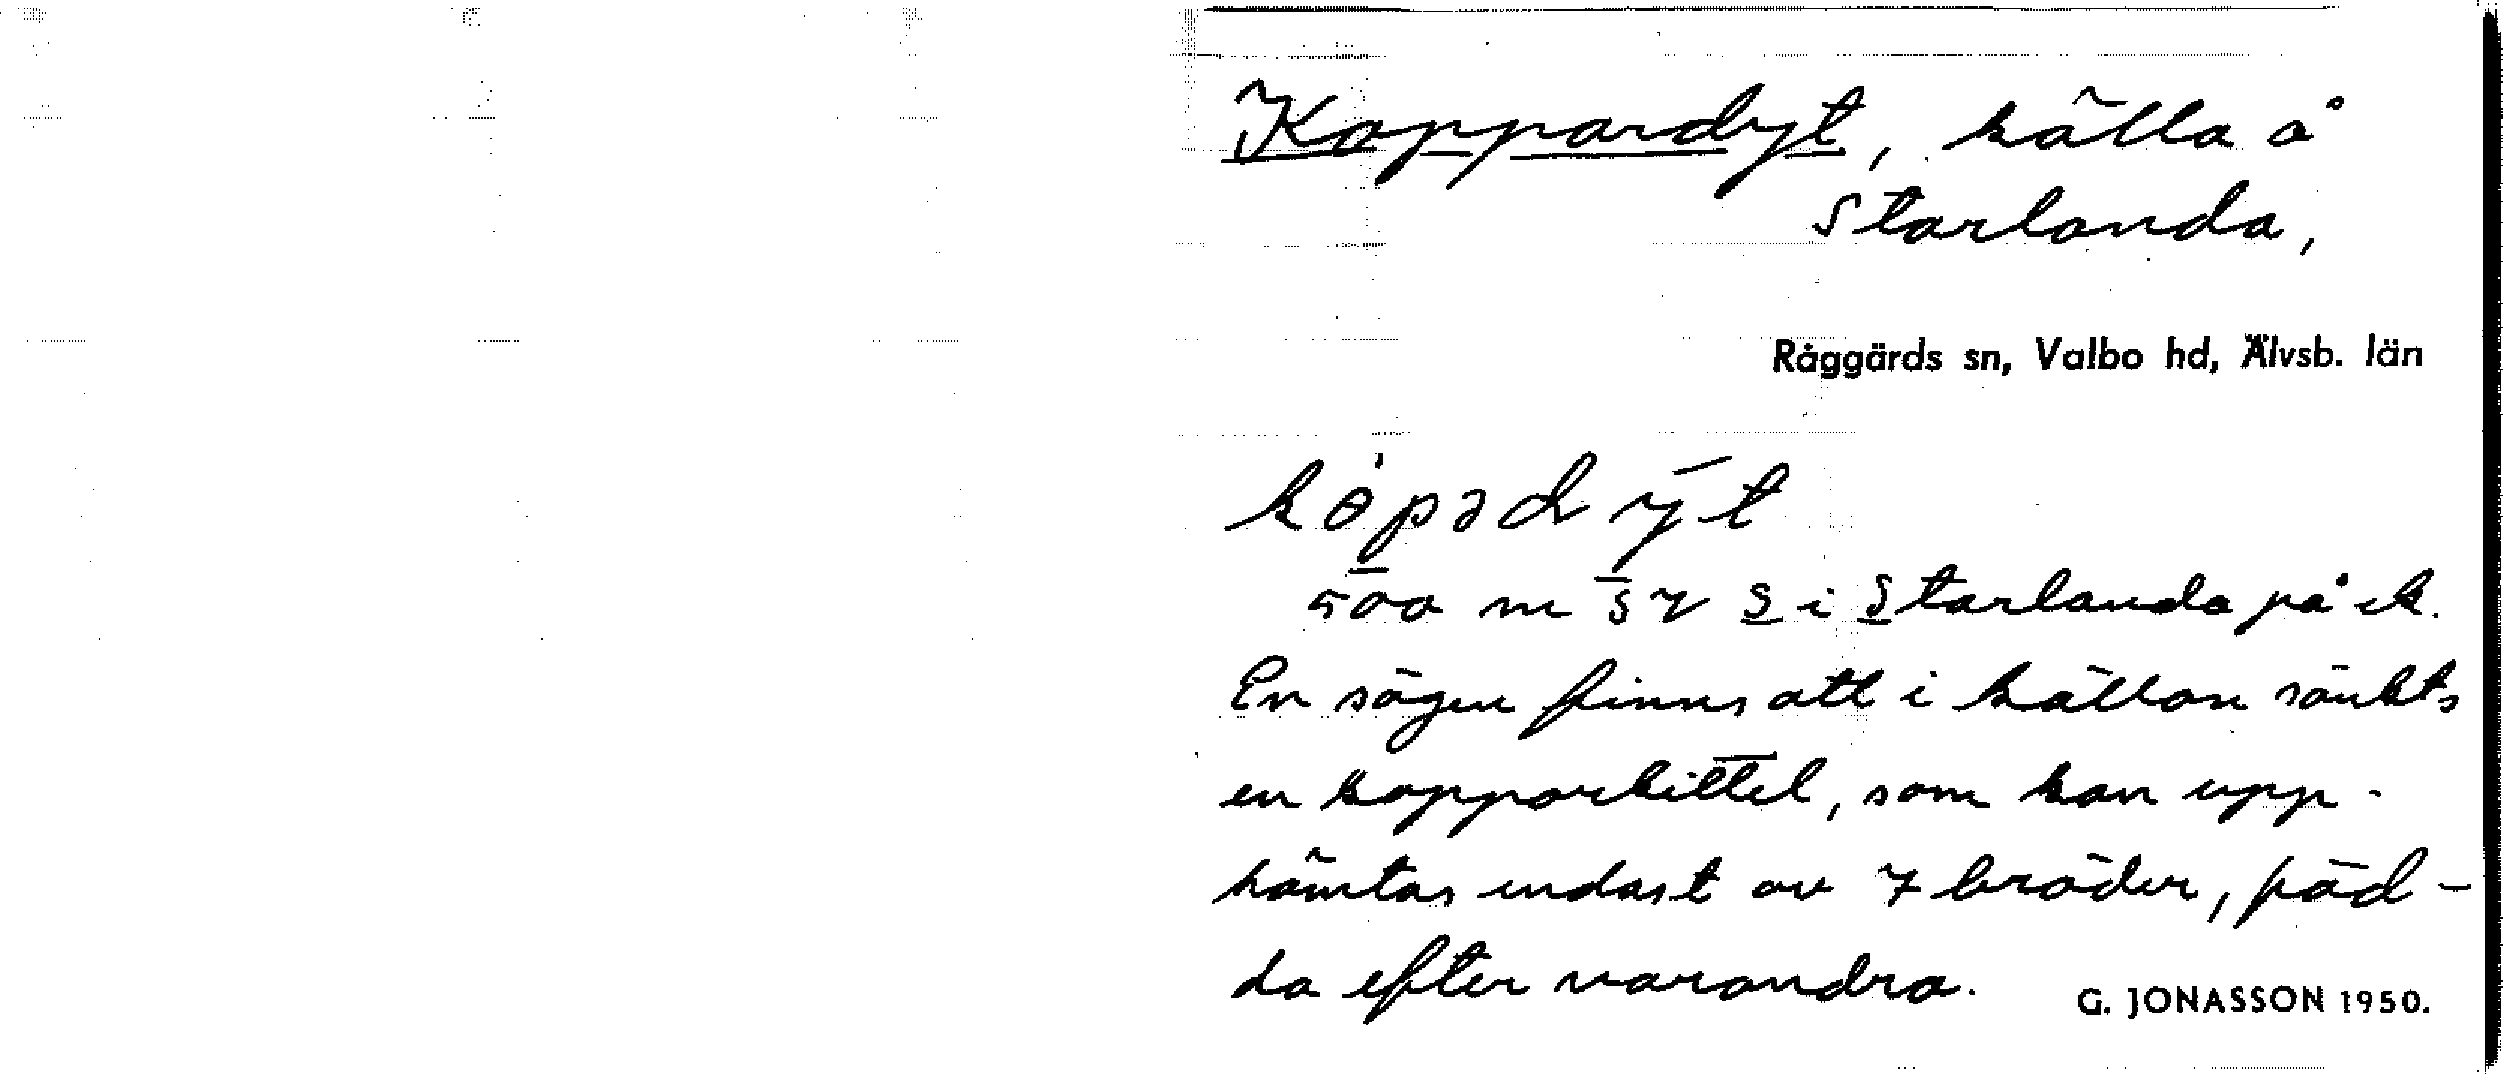 Koppardyt, källa å
Starlanda,
Råggärds sn, Valbo hd, Älvsb. län
kɵ̀pədýt
500 m S v S i Starlanda på ek.
En sägen finns att i källan sänkts
en kopparkittel, som kan upp-
hämtas endast av 7 bröder, föd-
da efter varandra.
G. JONASSON 1950.